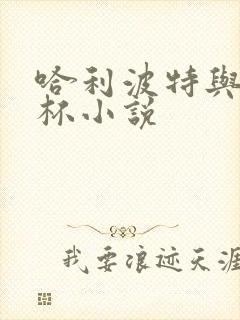 哈利波特與
杯小說
我要浪迹天涯